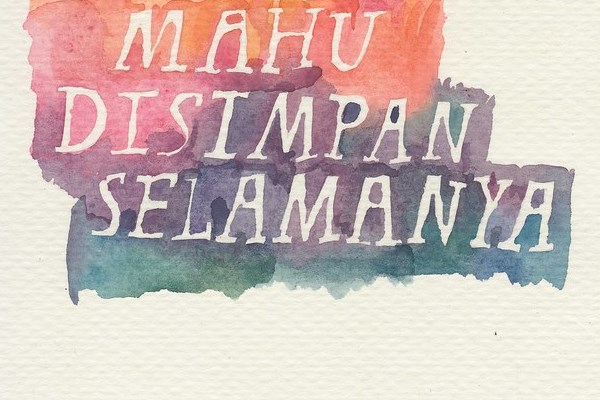 MAHU
DISIMPAN
SELAMANYA